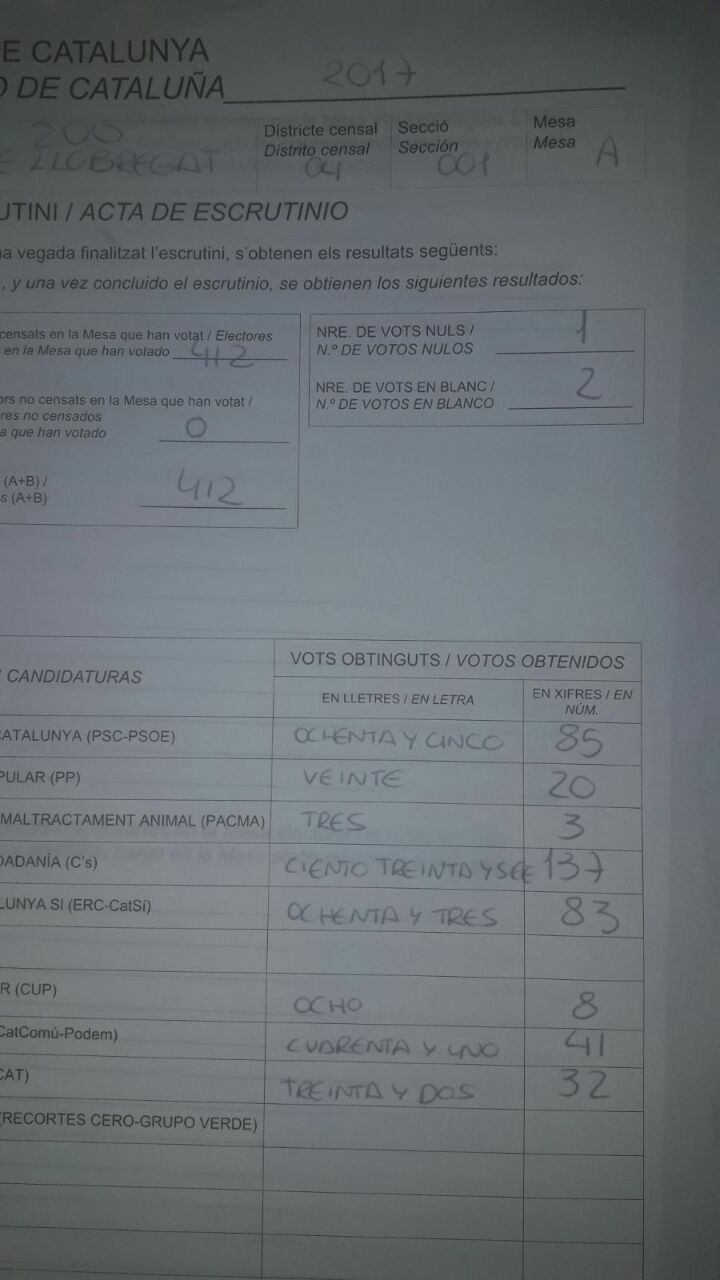 E CATALUNYA 2017
O DE CATALUÑA
200 Districte censal Secció Mesa
E LLOBREGAT Distrito censal Sección Mesa
04 001 A
UTINI / ACTA DE ESCRUTINIO
na vegada finalitzat l'escrutini, s'obtenen els resultats següents:
, y una vez concluido el escrutinio, se obtienen los siguientes resultados:
censats en la Mesa que han votat / Electores
en la Mesa que han votado 412
ors no censats en la Mesa que han votat /
res no censados
a que han votado 0
(A+B) /
s (A+B) 412
NRE. DE VOTS NULS / 1
N.º DE VOTOS NULOS
NRE. DE VOTS EN BLANC / 2
N.º DE VOTOS EN BLANCO
/ CANDIDATURAS
VOTS OBTINGUTS / VOTOS OBTENIDOS
EN LLETRES / EN LETRA
EN XIFRES / EN
NÚM.
CATALUNYA (PSC-PSOE) OCHENTA Y CINCO 85
PULAR (PP) VEINTE 20
MALTRACTAMENT ANIMAL (PACMA) TRES 3
DADANÍA (C's) CIENTO TREINTA Y SEE 137
LUNYA SI (ERC-CatSí) OCHENTA Y TRES 83
R (CUP) OCHO 8
CatComú-Podem) CUARENTA Y UNO 41
CAT) TREINTA Y DOS 32
(RECORTES CERO-GRUPO VERDE)